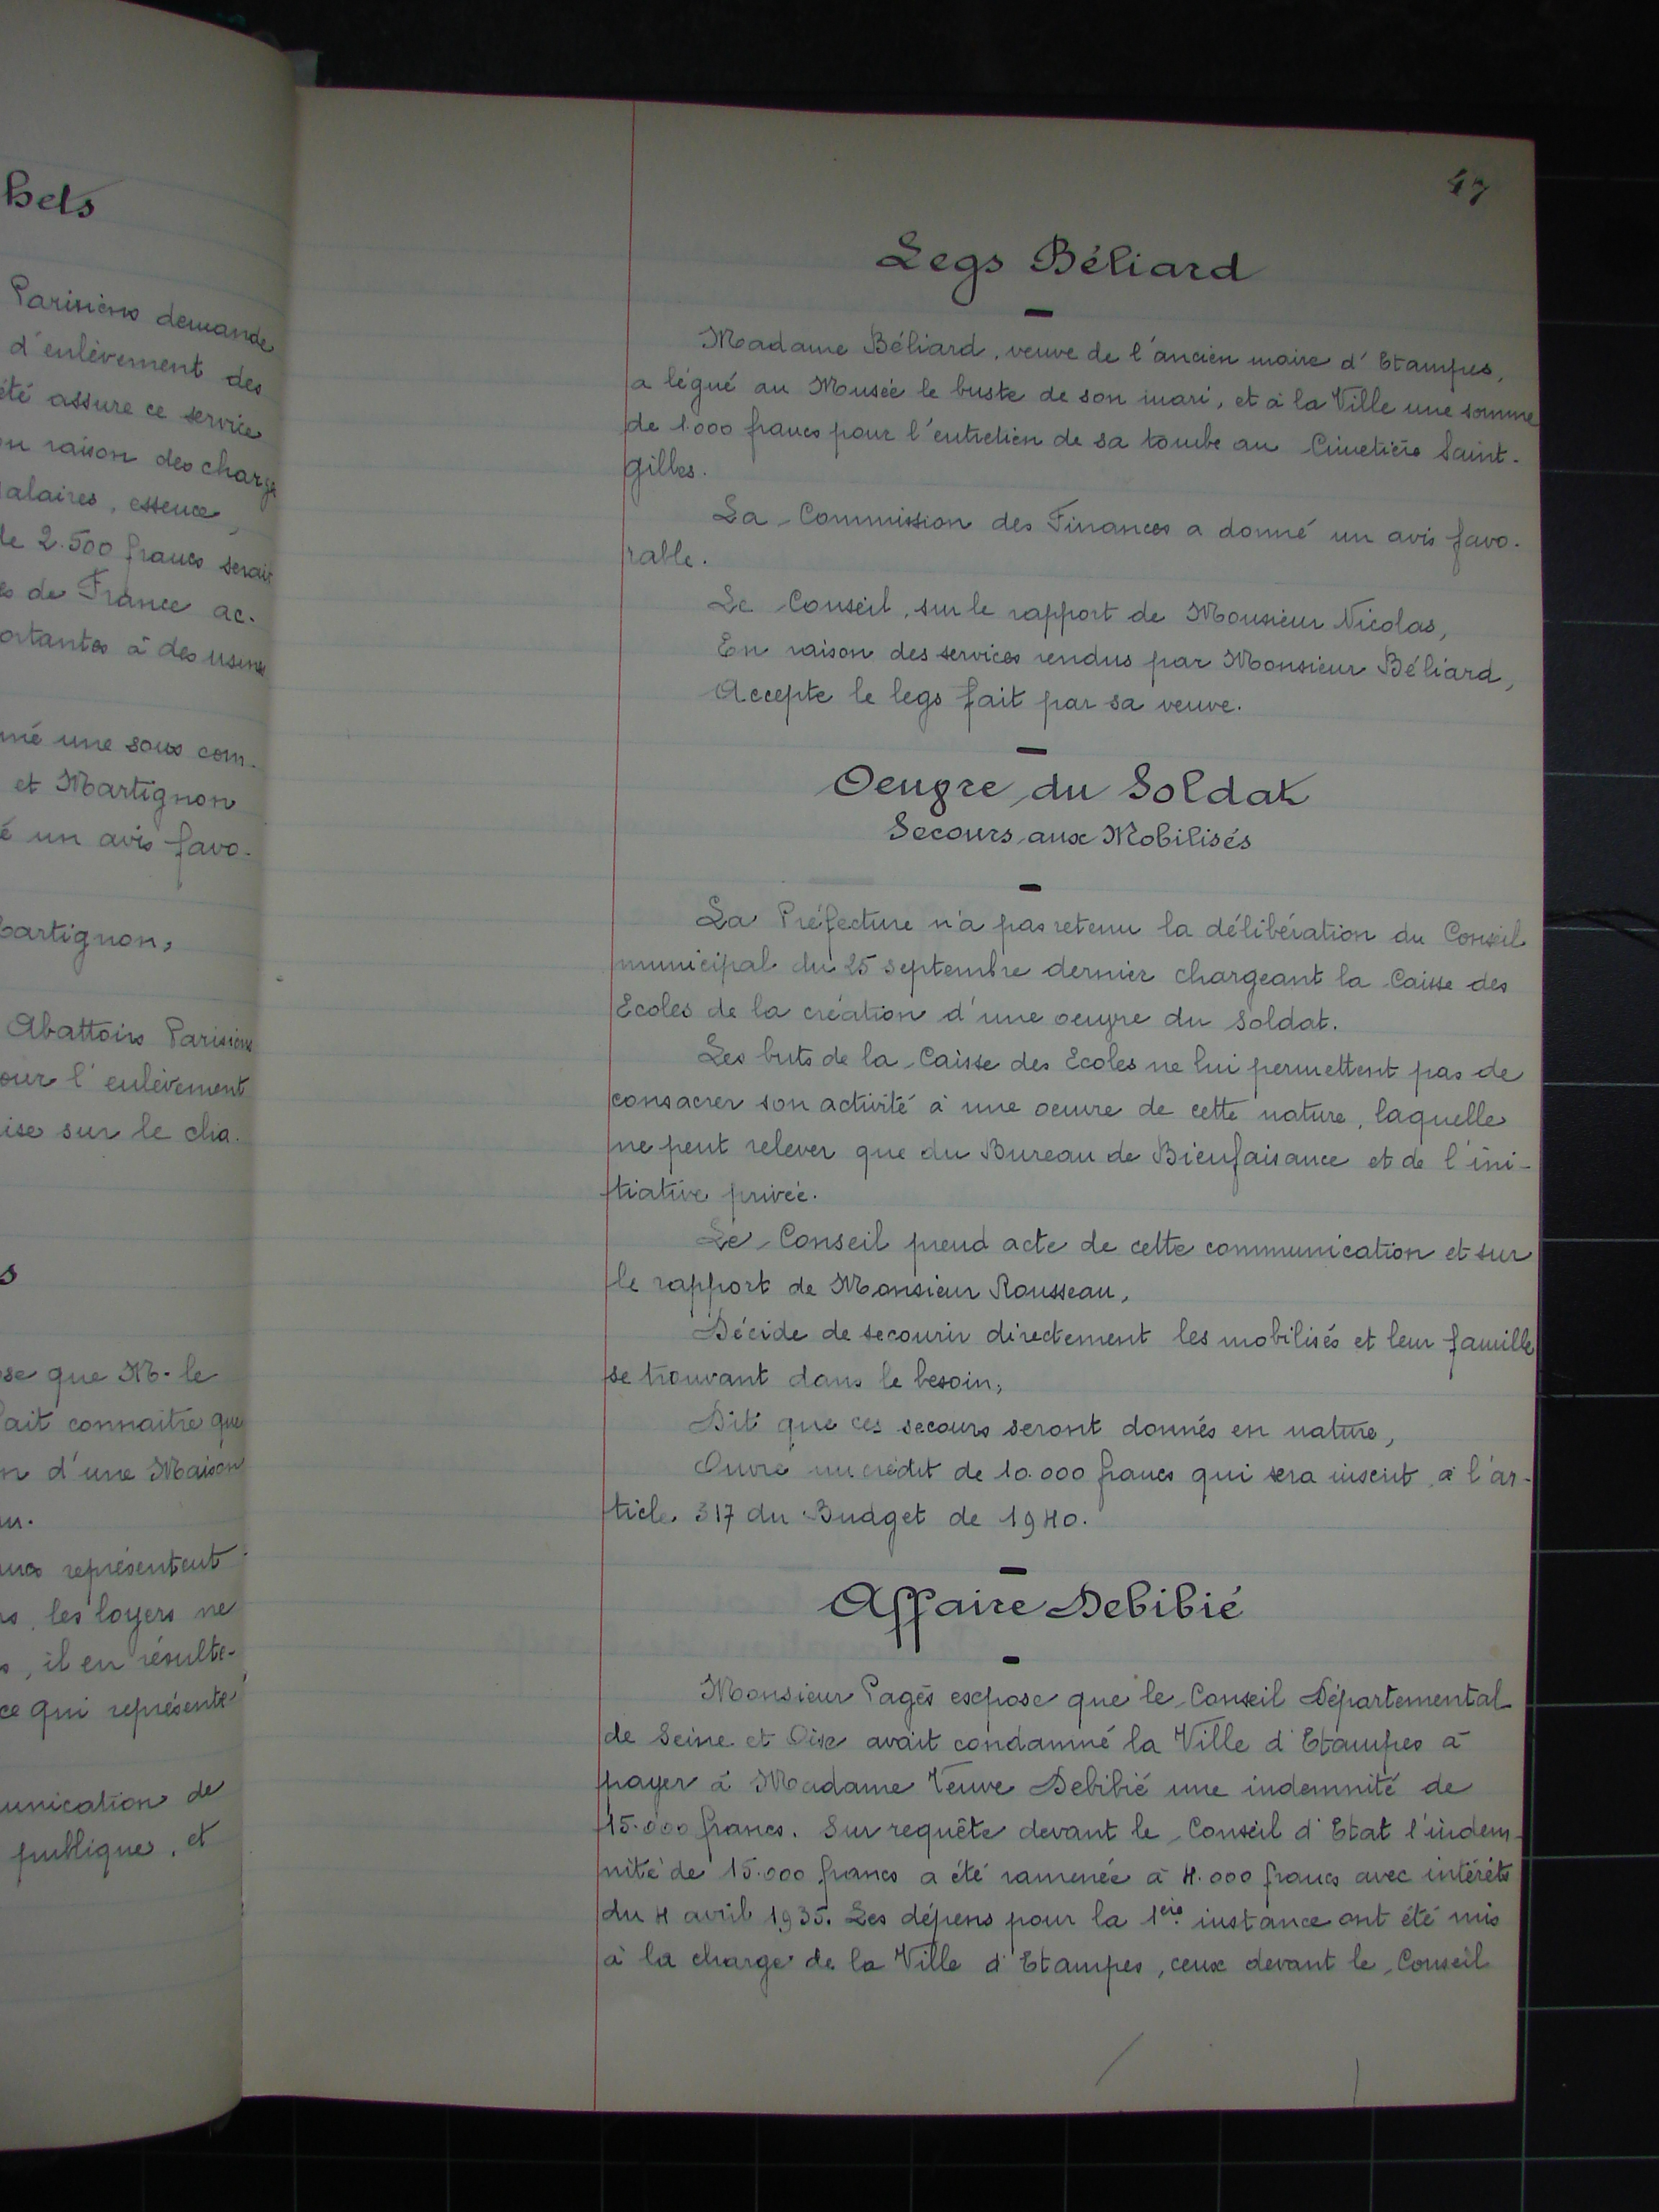 hets
Parisiens demande
d'enlèvement des
été assure ce service
en raison des charge
salaires, essence,
de 2.500 francs serait
es de France ac-
ortantes à des usines
mé une sous com-
et Martignon
é un avis favo-
Martignon,
Abattoirs Parisiens
pour l'enlèvement
ise sur le cha-
s
ose que M. le
fait connaitre que
n d'une Maison
au.
représentent
, les loyers ne
, il en résulte-
ce qui représente
munication de
publique, et
47
Legs Béliard
Madame Béliard, veuve de l'ancien maire d'Etampes,
a légué au Musée le buste de son mari, et à la Ville une somme
de 1.000 francs pour l'entretien de sa tombe au Cimetière Saint-
Gilles.
La Commission des Finances a donné un avis favo-
rable.
Le Conseil, sur le rapport de Monsieur Nicolas,
En raison des services rendus par Monsieur Béliard,
Accepte le legs fait par sa veuve.
Oeuvre du Soldat
Secours aux Mobilisés
La Préfecture n'a pas retenu la délibération du Conseil
municipal du 25 septembre dernier chargeant la Caisse des
Ecoles de la création d'une oeuvre du Soldat.
Les buts de la Caisse des Ecoles ne lui permettent pas de
consacrer son activité à une oeuvre de cette nature, laquelle
ne peut relever que du Bureau de Bienfaisance et de l'ini-
tiative privée.
Le Conseil prend acte de cette communication et sur
le rapport de Monsieur Rousseau,
Décide de secourir directement les mobilisés et leur famille
se trouvant dans le besoin,
Dit que ces secours seront donnés en nature,
Ouvre un crédit de 10.000 francs qui sera inscrit à l'ar-
ticle 317 du Budget de 1940.
Affaire Debibié
Monsieur Pagès expose que le Conseil Départemental
de Seine et Oise avait condamné la Ville d'Etampes à
payer à Madame Veuve Debibié une indemnité de
15.000 francs. Sur requête devant le Conseil d'Etat l'indem-
nité de 15.000 francs a été ramenée à 4.000 francs avec intérêts
du 4 avril 1935. Les dépens pour la 1ère instance ont été mis
à la charge de la Ville d'Etampes, ceux devant le Conseil